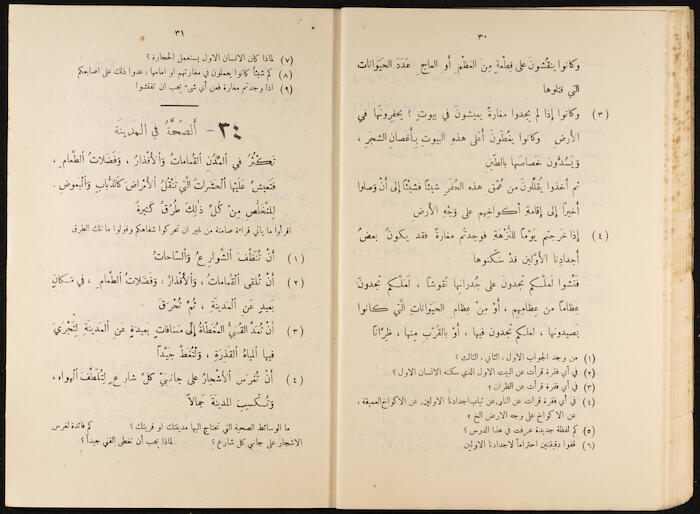 ٣٠
وكانوا ينقُشونَ على قِطعةٍ مِنَ العَظْمِ أو العاجِ عَدَدَ الحَيَوانات
التي قتلوها
(٣) وكانوا إذا لم يجدوا مغارةً يعيشونَ في بيوتٍ ؟ يحفِرونَها في
الأرضِ . وكانوا يغطّونَ أعلى هذهِ البيوتِ بِأغصانِ الشجَرِ ،
ويَسُدُّونَ خَصاصَها بالطِّينِ
ثم أخذوا يُقَلِّلونَ من عُمْقِ هذه الحُفَرِ شيئاً فشيئاً إلى أنْ وَصلوا
أخيراً إلى إقامةِ أكواخِهِم على وَجْهِ الأرض
(٤) إذا خَرَجتم يَوْماً للنُّزْهَةِ فوجدتُم مغارةً فقد يكونُ بعضُ
أجدادِنا الأوَّلينَ قدْ سَكَنوها
فَتِّشوا لعلَّكم تجدونَ على جُدرانِها نُقوشاً ، لعَلَّكم تجدونَ
عِظاماً من عِظامِهِم ، أوْ مِنْ عِظامِ الحَيَواناتِ الَّتي كانُوا
يَصيدونَها ، لعلَّكم تجدونَ فيها ، أوْ بالقُرْبِ مِنها ، ظِرَّاناً
(١) من وجد الجواب الاول ، الثاني ، الثالث ؟
(٢) في أي فقرة قرأت عن البيت الاول الذي سكنه الانسان الاول ؟
(٣) في أي فقرة قرأت عن الظران ؟
(٤) في أي فقرة قرات عن النار، عن ثياب اجدادنا الاولين، عن الاكواخ العميقة ،
عن الاكواخ على وجه الارض الخ ؟
(٥) كم لفظة جديدة عرفت في هذا الدرس ؟
(٦) قفوا دقيقتين احتراماً لاجدادنا الاولين
٣١
(٧) لماذا كان الانسان الاول يستعمل الحجارة ؟
(٨) كم شيئاً كانوا يعملون في مغارتهم او امامها ، عدوا ذلك على اصابعكم
(٩) اذا وجدتم مغارة فعن أي شيء يجب ان تفتشوا
٣٤- ألصِّحَّةُ في المَدينَة
تَكْثُرُ في ألمُدُنِ ألقُماماتُ وَألأقذارُ ، وَفَضَلاتُ ألطَّعامِ ،
فَتَعيشُ عَلَيْها ألحَشَراتُ ألَّتي تَنْقُلُ ألأَمْراضَ كَألذُّبابِ وَألبَعوضِ .
لِلتَّخَلُّصِ مِنْ كُلِّ ذلِكَ طُرُقٌ كَثيرَةٌ
اقرأوا ما يأتي قراءة صامتة من غير ان تحركوا شفاهكم وقولوا ما تلك الطرق
(١) أنْ تُنَظَّفَ ألشَّوارعُ وَألسَّاحاتُ
(٢) أنْ تُلقى ألقُماماتُ ، وَألأقْذارُ ، وَفَضَلاتُ ألطَّعامِ ، في مَكانٍ
بَعيدٍ عَنِ ألمَدينَةِ ، ثُمَّ تُحْرَقَ
(٣) أنْ تُمَدَّ ألقُنِيُّ ألمُغَطَّاةُ إلى مَسَافاتٍ بَعيدَةٍ عَنِ ألمَدينَةِ لِتَجْرِيَ
فيها ألمِياهُ ألقَذِرَةُ ، وَلْتُغَطَّ جَيِّداً
(٤) أنْ تُغْرَسَ ألأَشْجارُ عَلى جانِبَيْ كُلِّ شارعٍ لِتُلَطِّفَ ألهَواءَ ،
وَتُكْسِبَ المَدينَةَ جَمالاً
ما الوسائط الصحية التي تحتاج اليها مدينتك او قريتك ؟ كم فائدة لغرس
الاشجار على جانبي كل شارع ؟ لماذا يجب أن تغطى القني جيداً ؟